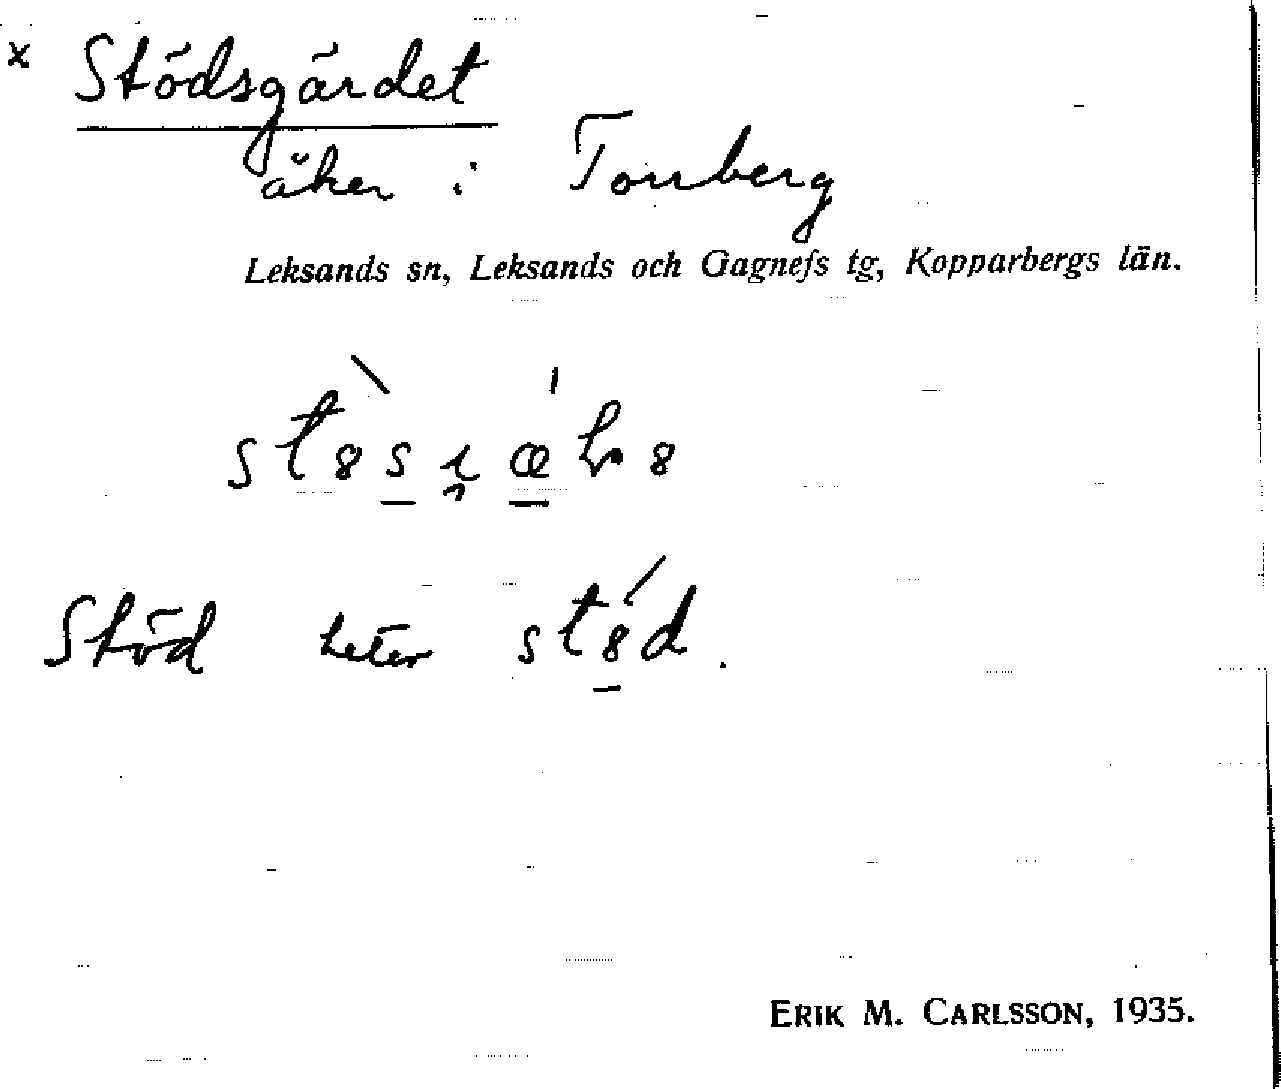 x Stödsgärdet
åker i Torrberg
Leksands sn, Leksands och Gagnefs tg, Kopparbergs län.
Stöd heter stöd.
ERIK M. CARLSSON, 1935.